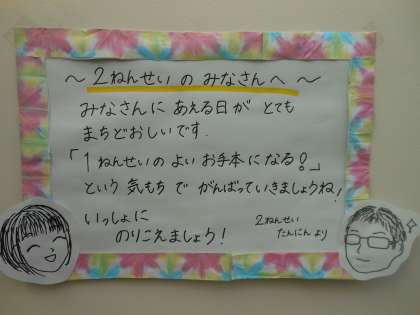 ～2ねんせいの みなさんへ～
みなさんに あえる日が とても
まちどおしいです.
「1ねんせいの よい お手本に なる!」
という 気もち で がんばっていきましょうね!
いっしょに
のりこえましょう!
2ねんせい
たんにん より